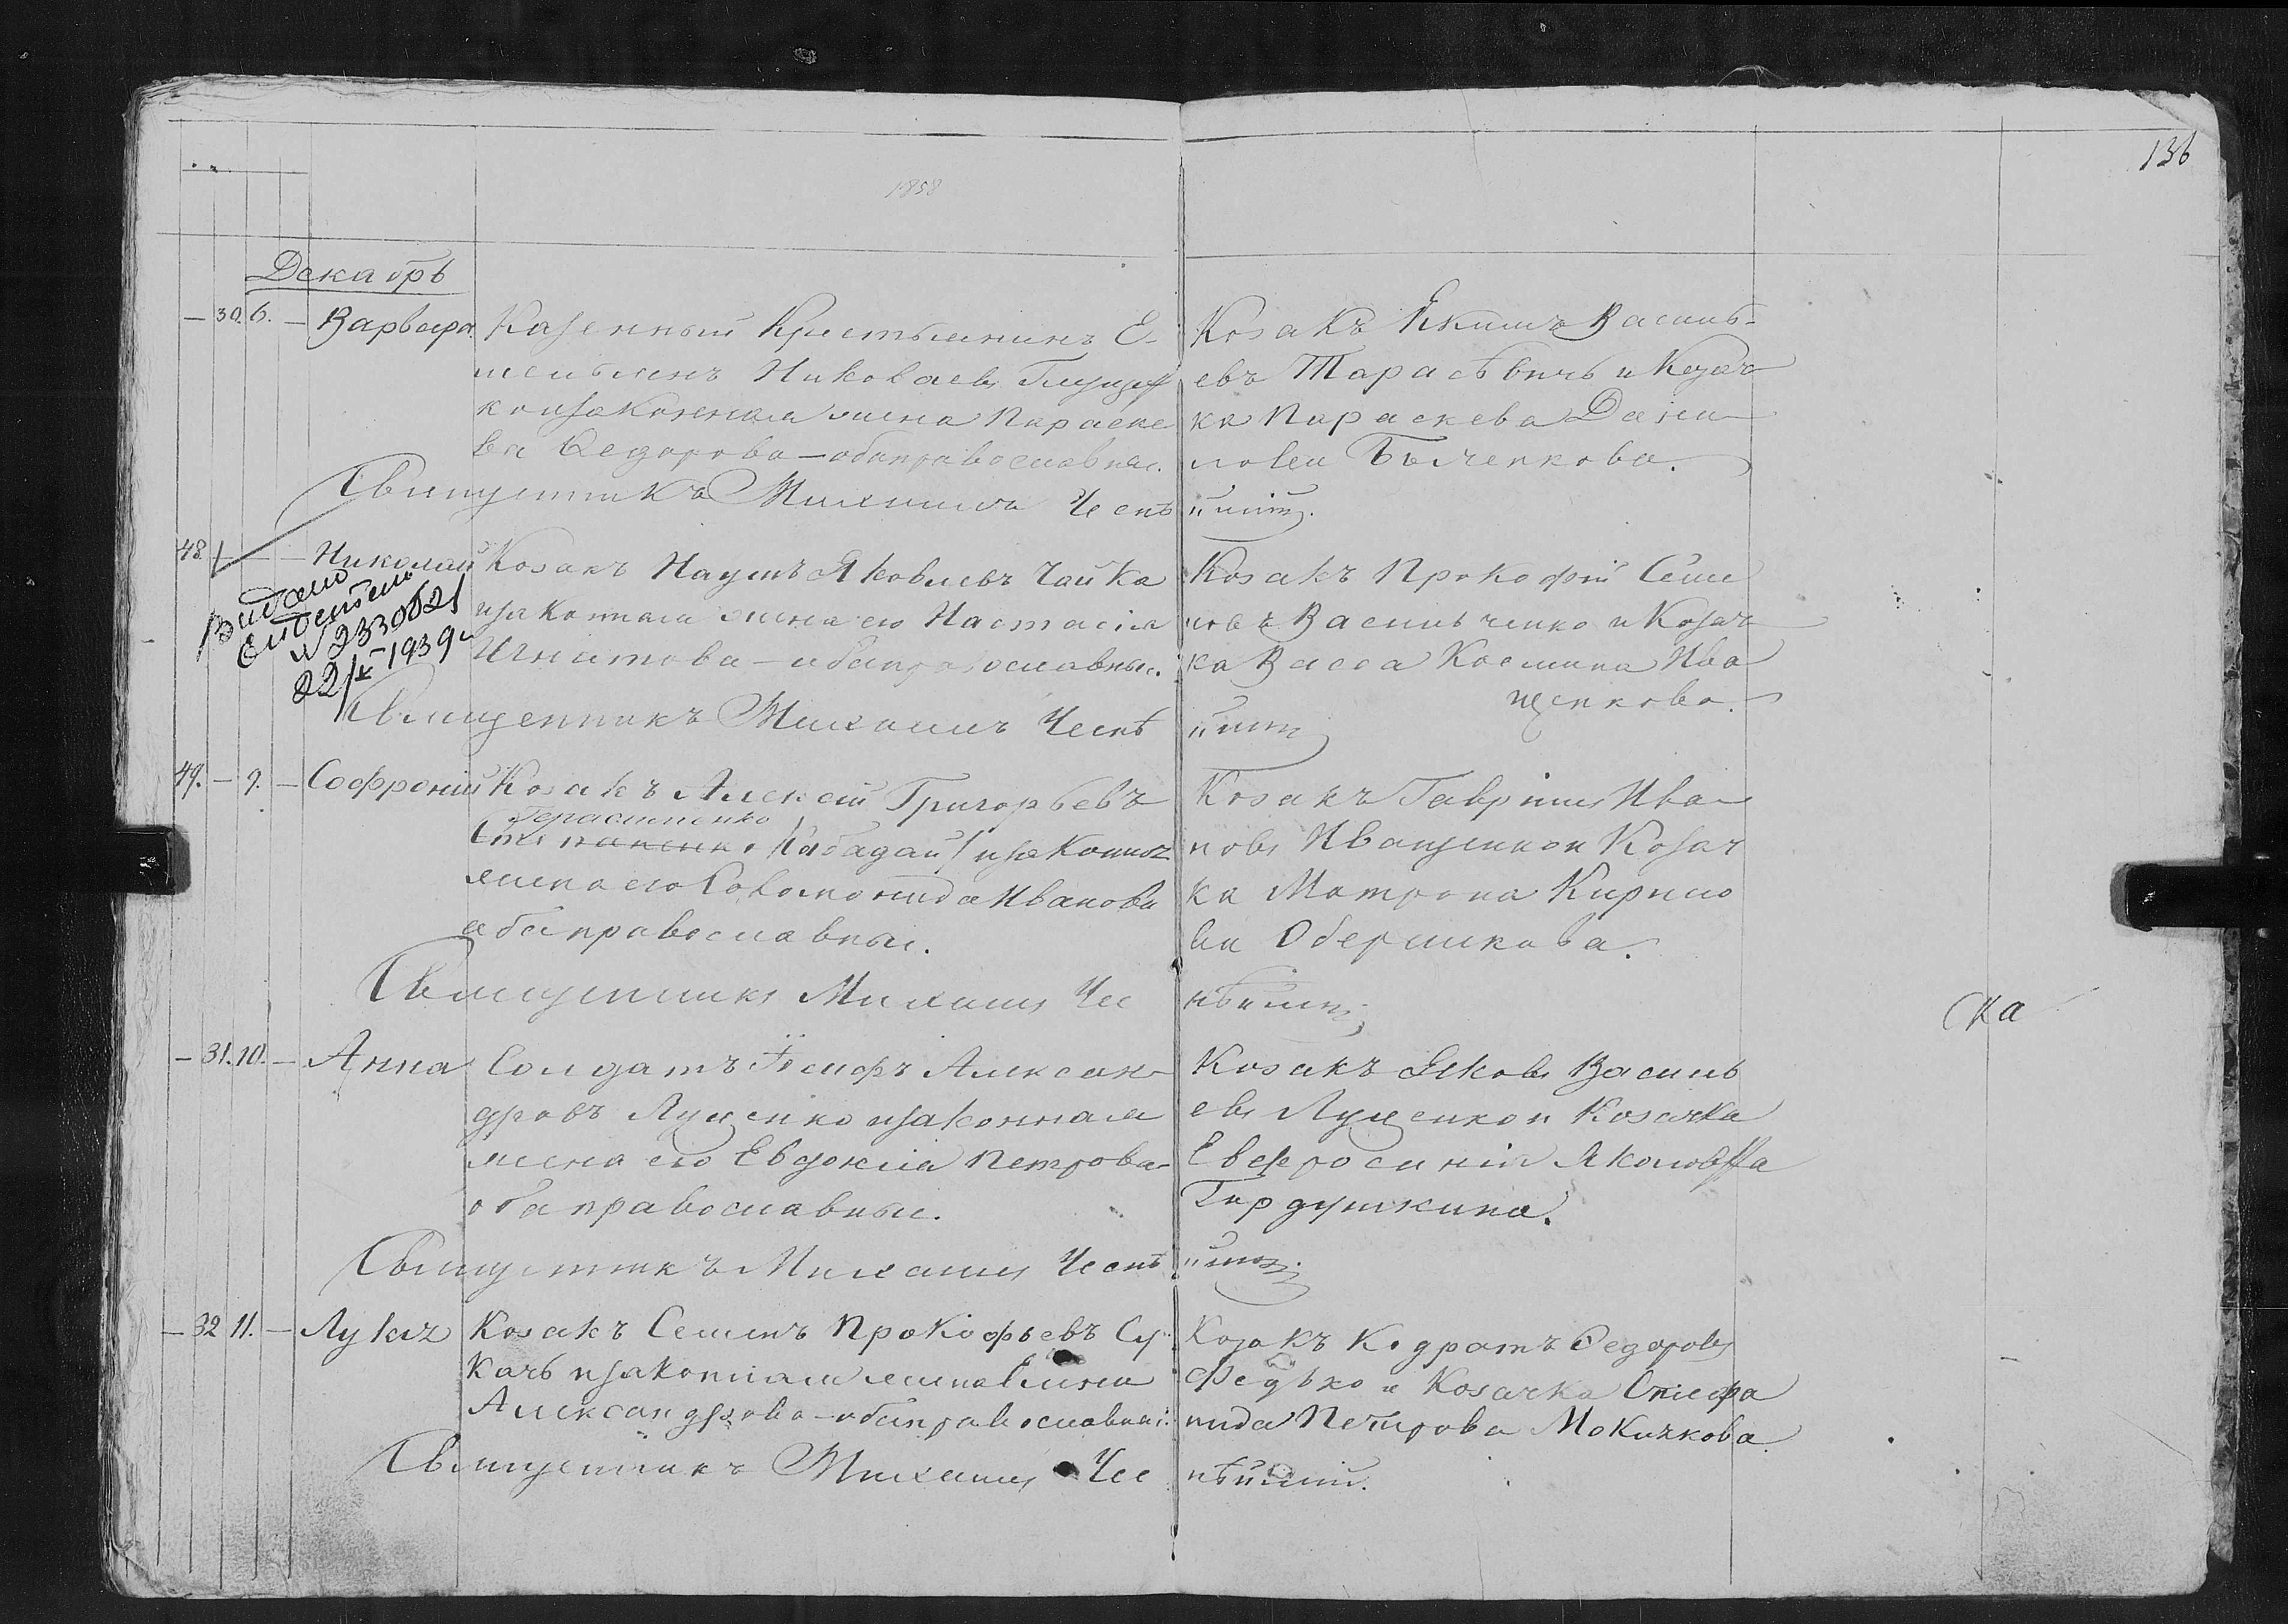 136
1858
Декабрь
— 30. 6. — Варвара
Казенный Крестьянинъ Е-
мельянъ Николаевъ
и законная жена Параске
ва Ѳедорова — оба православные.
Козакъ Якимъ Василь-
евъ Тарасѣвичь и Козач
ка Параскева Дани
лова
Священникъ Михаилъ Чеснѣ
йшій.
48 — Николай
Козакъ Наумъ Яковлевъ Чайка
и законная жена его Настасія
Игнатова — оба православные.
Козакъ Прокофій Семе
новъ Васильченко и Козач
ка Васса Космина Ива
щенкова.
Видано
№ 2330621
22/X 1939 г.
Священникъ Михаилъ Чеснѣ
йшій
49. — 9. — Софроній
Козакъ Алексей Григорьевъ
Герасименко
Степаненко /Кабадай/ и законная
жена его Соломонида Иванова
оба православные.
Козакъ Гавріилъ Ива
новъ Иващенко и Козач
ка Матрона Кирило
ва
Священникъ Михаилъ Чес
нѣйшій
ка
— 31. 10. — Анна
Солдатъ Іосифъ Алексан-
дровъ Луценко и законная
жена его Евдокія Петрова
оба православные.
Козакъ Яковъ Василь
евъ Луценко и Козачка
Евфросинія Яковлева
Гардушкина.
Священникъ Михаилъ Чеснѣ
йшій.
— 32 11. — Лукія
Козакъ Семенъ Прокофьевъ Су
качь и законная жена
Александрова — оба православные.
Козакъ Кодратъ Ѳедоровъ
Федько и Козачка Степа
нида Петрова
Священникъ Михаилъ Чес
нѣйшій.